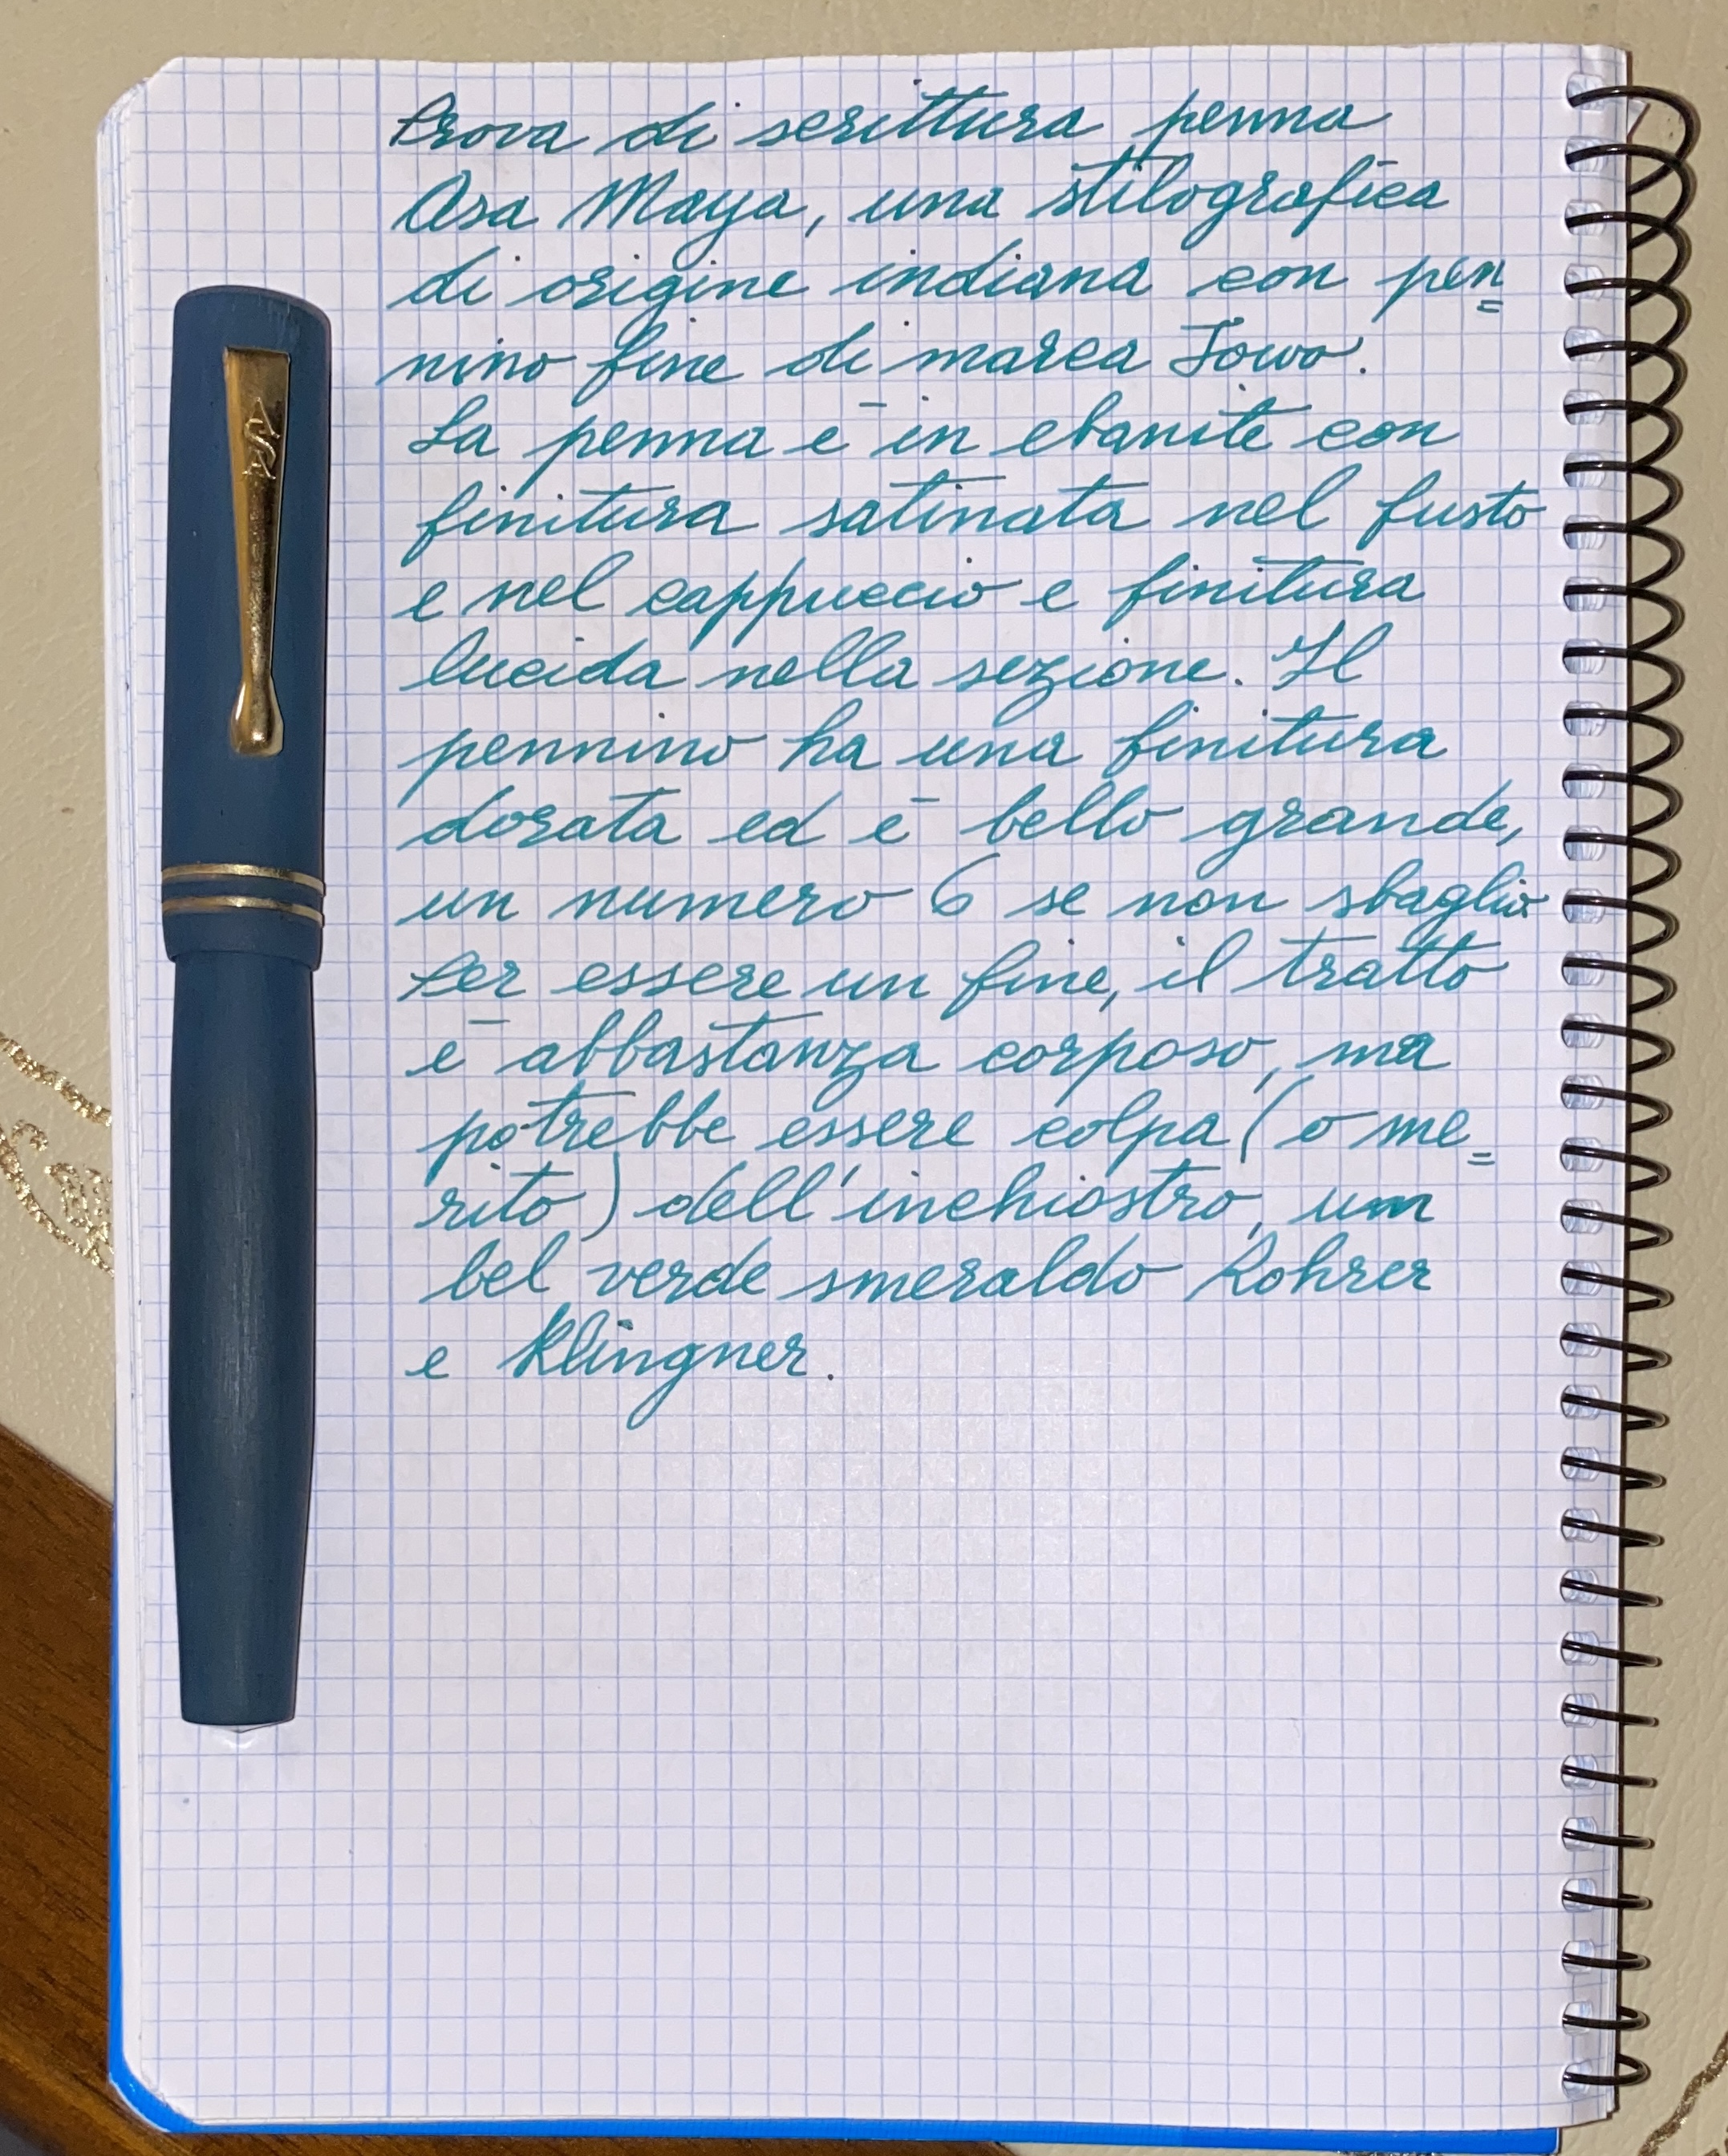 ASA
Prova di scrittura penna
Asa Maya, una stilografica
di origine indiana con pen=
nino fine di marca Jowo.
La penna è in ebanite con
finitura satinata nel fusto
e nel cappuccio e finitura
lucida nella sezione. Il
pennino ha una finitura
dorata ed è bello grande,
un numero 6 se non sbaglio.
Per essere un fine, il tratto
è abbastanza corposo, ma
potrebbe essere colpa (o me=
rito) dell'inchiostro, un
bel verde smeraldo Rohrer
e Klingner.